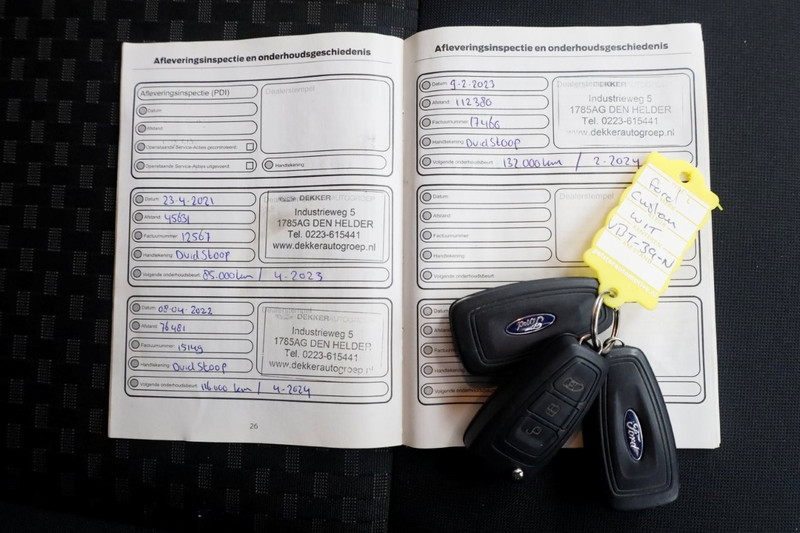 Afleveringsinspectie en onderhoudsgeschiedenis
Afleveringsinspectie (PDI)
Dealerstempel
Datum:
Afstand:
Openstaande Service-Acties gecontroleerd:
Openstaande Service-Acties uitgevoerd:
Handtekening:
Datum: 23-4-2021
Afstand: 45631
Factuurnummer: 12567
Handtekening: Duidstoop
Volgende onderhoudsbeurt: 85.000 km / 4-2023
DEKKERAUTOGROEP
Industrieweg 5
1785AG DEN HELDER
Tel. 0223-615441
www.dekkerautogroep.nl
Datum: 08-04-2022
Afstand: 76481
Factuurnummer: 15149
Handtekening: Duidstoop
Volgende onderhoudsbeurt: 116.000 km / 4-2024
DEKKERAUTOGROEP
Industrieweg 5
1785AG DEN HELDER
Tel. 0223-615441
www.dekkerautogroep.nl
26
Afleveringsinspectie en onderhoudsgeschiedenis
Datum: 9-2-2023
Afstand: 112380
Factuurnummer: 17466
Handtekening: Duidstoop
Volgende onderhoudsbeurt: 132.000 km / 2-2024
DEKKER
Industrieweg 5
1785AG DEN HELDER
Tel. 0223-615441
www.dekkerautogroep.nl
Datum:
Afstand:
Factuurnummer:
Handtekening:
Volgende onderhoudsbeurt:
Datum:
Afstand:
Volgende onderhoudsbeurt:
Ford
Custom
WIT
VBT-39-N
Ford
Ford